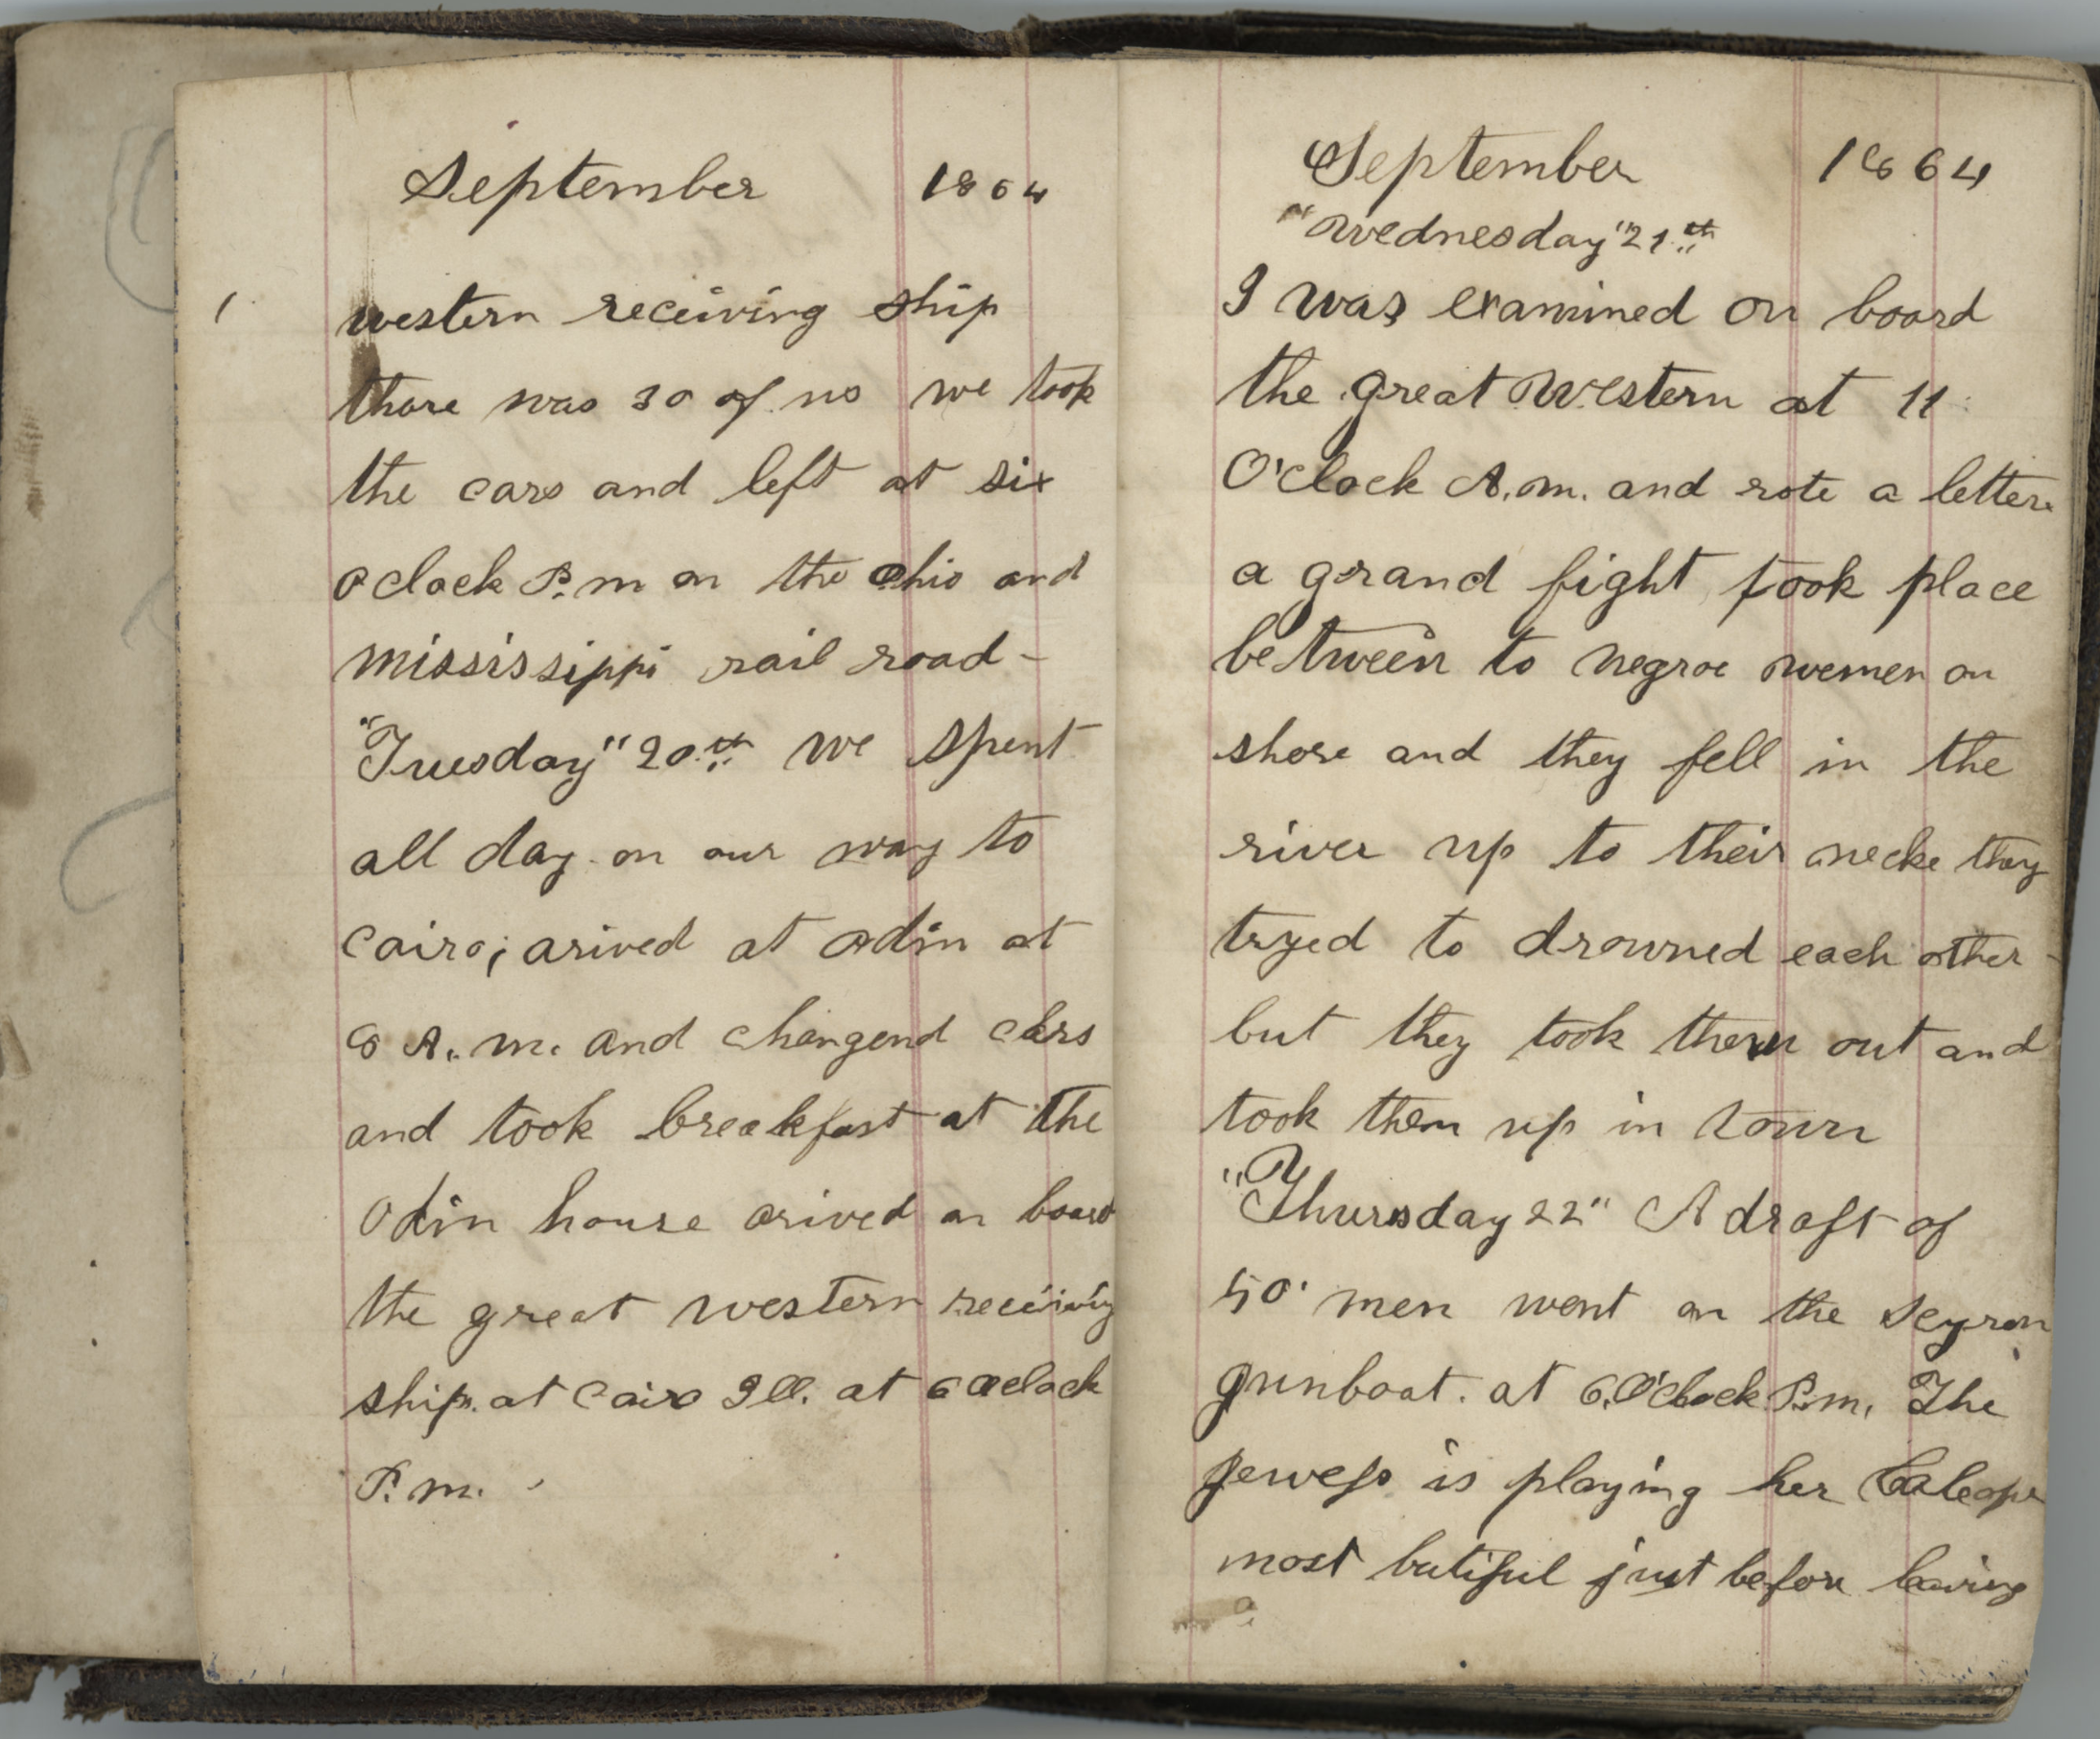 September 1864
western receiving ship
thare was 30 of us we took
the cars and left at six
o clock P.m on the ohio and
mississippi rail road -
"Tuesday" 20th we spent
all day on our way to
Cairo; arived at odin at
8 A. m. and changend cars
and took breakfast at the
Odin house arived on board
the great western receiving
ship. at Cairo Ill. at 6 Oclock
P. m.
September 1864
"Wednesday" 21th
I was examined on board
the great Western at 11
O'Clock A.m. and rote a letter
a grand fight took place
between to negroe wemen on
shore and they fell in the
river up to their necke they
tryed to drowned each other -
but they took them out and
took them up in town
"Thursday 22" A draft of
50 men went on the
gunboat. at 6.O'Clock P.m. The
jewess is playing her Caleope
most butiful just before leaving